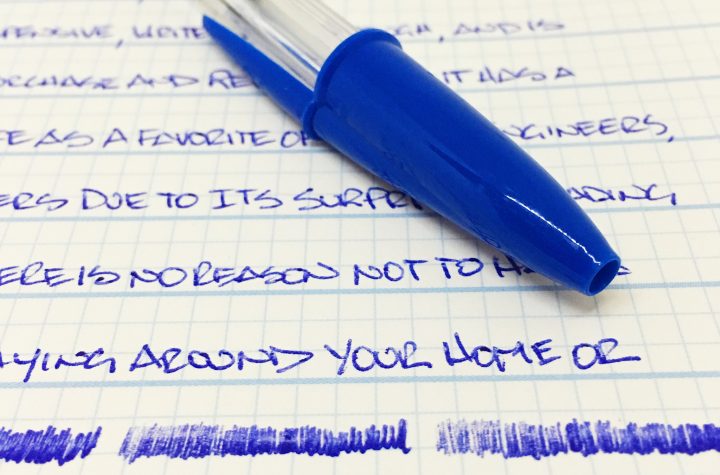 PENSIVE, WRITE GH, AND IS
URCHASE AND RE IT HAS A
FE AS A FAVORITE O NGINEERS,
ERS DUE TO ITS SURPRI ADING
ERE IS NO REASON NOT TO H
AYING AROUND YOUR HOME OR